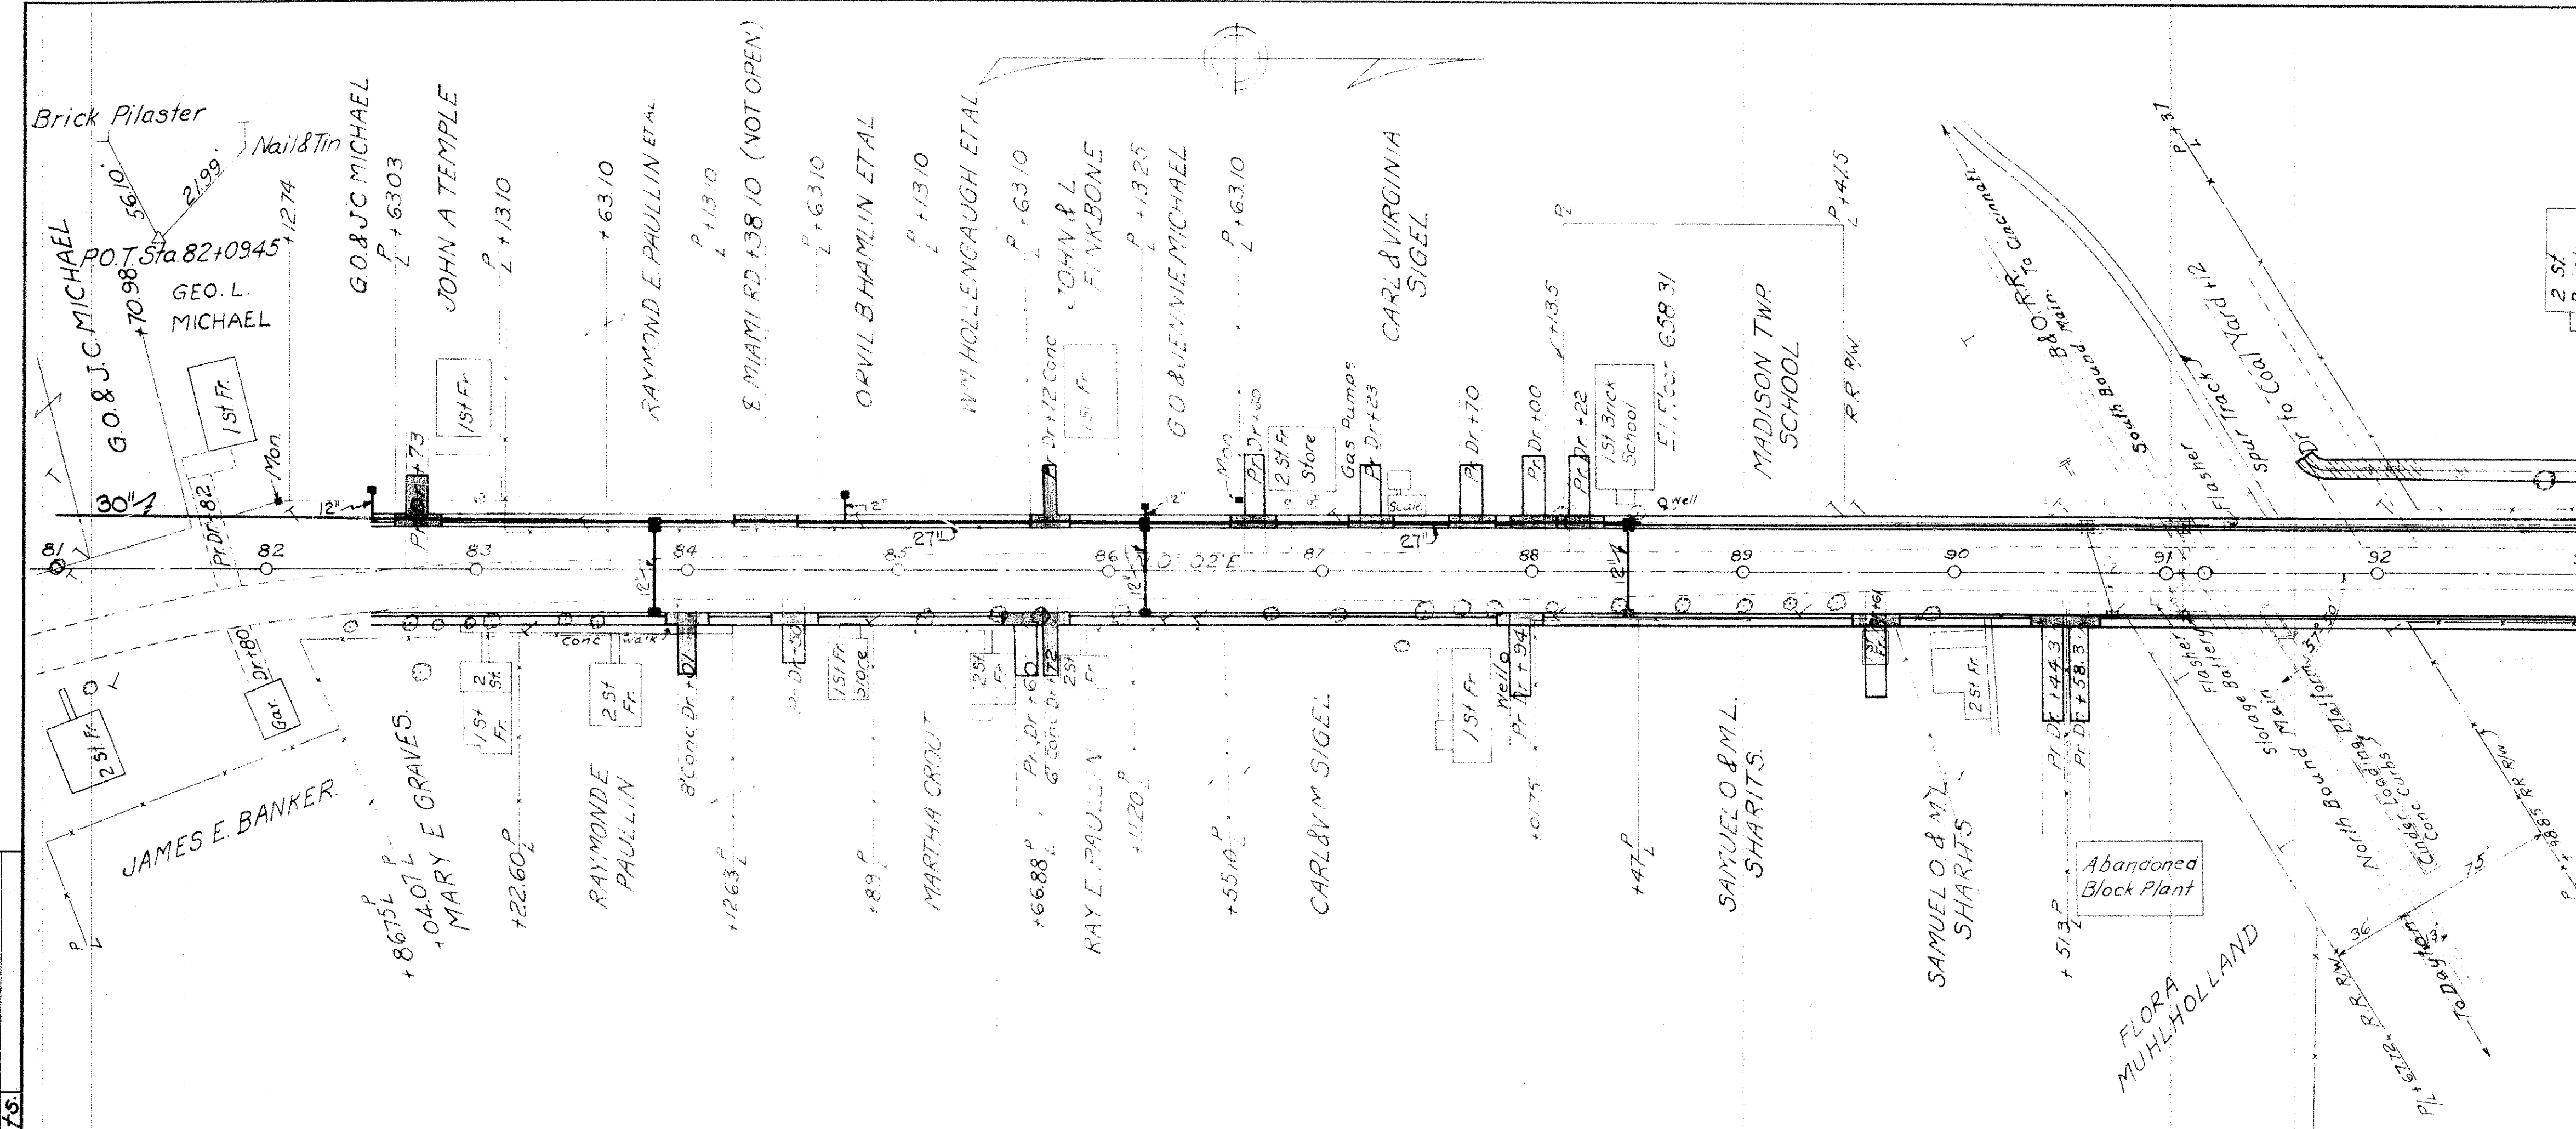 Brick Pilaster
Nail&Tin
56.10'
21.99'
P.O.T. Sta. 82+09.45
+12.74
+70.98
G.O.& J.C. MICHAEL
GEO. L.
MICHAEL
1 St Fr.
Mon.
30"
Pr Dr +82
G.O.& J.C MICHAEL
P L +63.03
JOHN A TEMPLE
P L +13.10
1 St Fr.
12"
Pr Dr +73
+63.10
RAYMOND E. PAULLIN ET AL.
P L +13.10
₵ MIAMI RD +38 10 (NOT OPEN)
P L +63.10
ORVIL B HAMLIN ET AL
P L +13.10
WM HOLLENGAUGH ET AL.
P L +63.10
JOHN & L
Pr Dr +72 Conc
1 St Fr.
P L +13.25
G O & JENNIE MICHAEL
P L +63.10
Mon
2 St Fr
Store
Gas Pumps
Pr Dr +23
Scale
CARL & VIRGINIA
SIGEL
Pr Dr +70
Pr Dr +00
Pr Dr +22
+13.5
1 St Brick
School
El. Floor 658 31
Well
MADISON TWP.
SCHOOL
R R R/W.
P L +47.5
B&O. R.R.
To Cincinnati
South Bound Main.
Flasher
Spur Track
Dr to Coal Yard +12
P L +37
2 St
12"
27"
12"
27"
81
82
83
84
85
86
N 0° 02' E
87
88
89
90
91
92
12"
12"
12"
57° 30'
2 St. Fr.
Dr +80
Gar.
JAMES E. BANKER.
P L
+86.75 P L
+04.07 L
MARY E GRAVES.
2
St.
1 St
Fr.
+22.60 P L
conc walk
2 St
Fr.
RAYMOND E
PAULLIN
8' Conc Dr. +01
+12.63 P L
Pr Dr +50
1 St Fr.
Store
+89 P L
MARTHA CROUT
2 St
Fr
Pr. Dr +60
6' Conc Dr +72
2 St
Fr
+66.88 P L
RAY E. PAULLIN
+11.20 P L
+55.10 P L
CARL & V M SIGEL
1 St Fr
Well
Pr Dr +94
+01.75
+47 P L
SAMUEL O & M.L.
SHARITS.
Pr Dr +61
SAMUEL O & M L.
SHARITS
2 St Fr.
Pr Dr +44.3
Pr Dr +58.3
+51.3 P L
Abandoned
Block Plant
Flasher
Flasher
Storage Battery
North Bound Main
Cinder Loading Platform
Conc Curbs
FLORA
MUHLHOLLAND
36'
75'
13'
To Dayton
R.R. R/W
P/L +67.72
RR R/W
P L +98.85
ts.